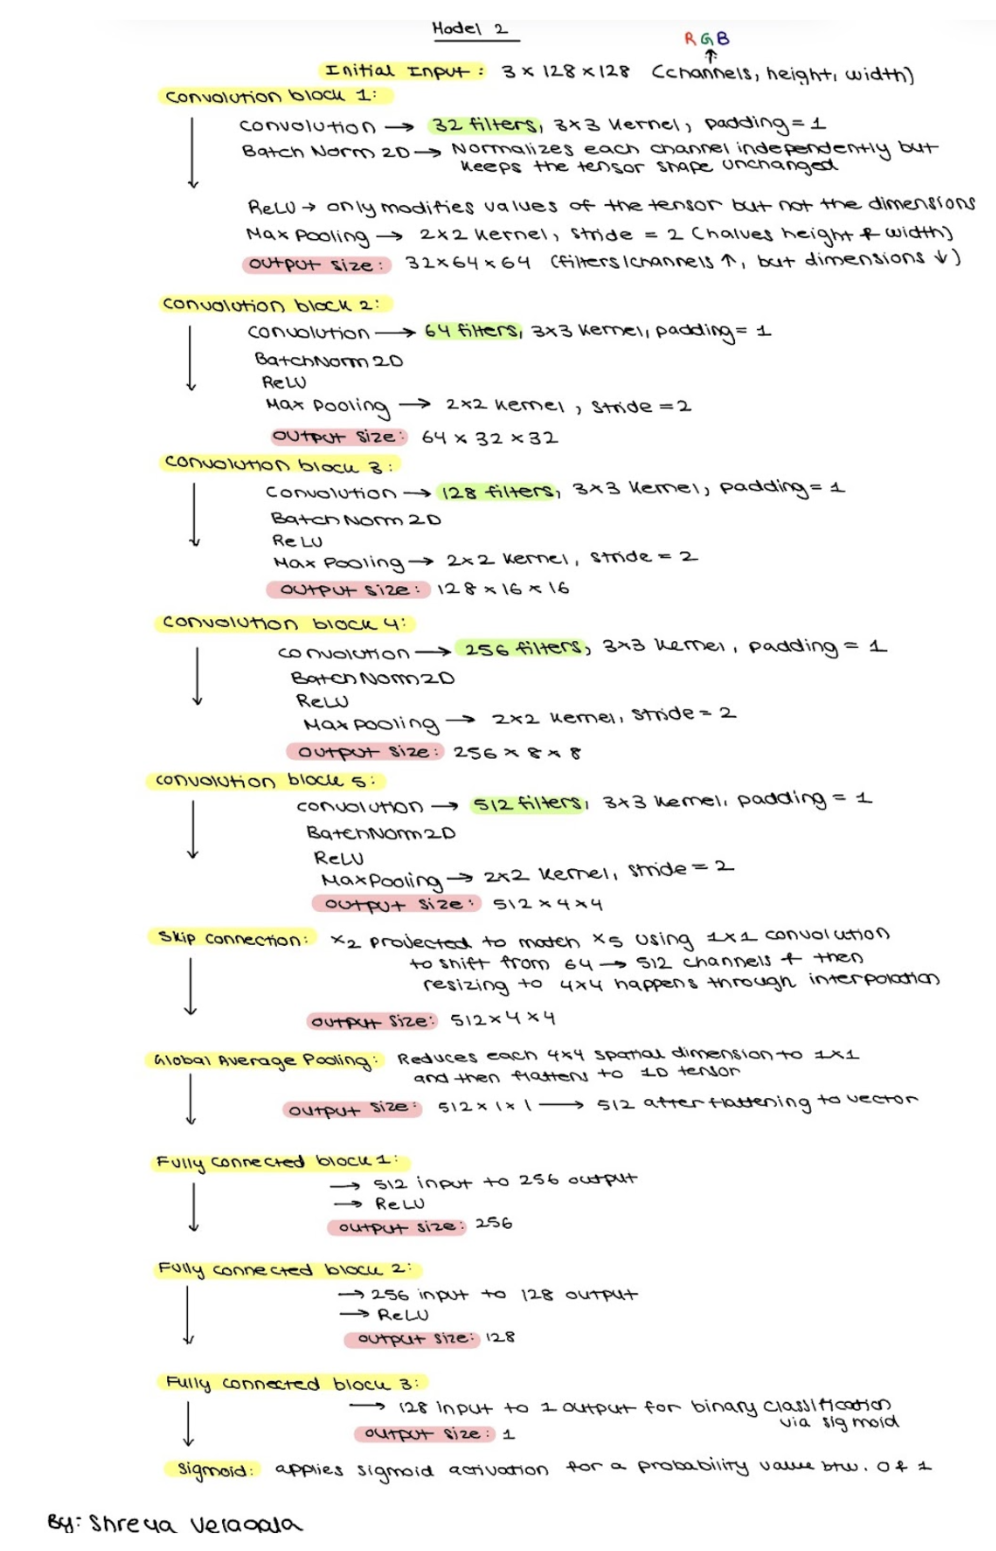 Model 2
RGB
Initial Input: 3 x 128 x 128 (channels, height, width)
Convolution block 1:
convolution → 32 filters, 3x3 kernel, padding = 1
Batch Norm 2D → Normalizes each channel independently but
keeps the tensor shape unchanged
ReLU → only modifies values of the tensor but not the dimensions
Max Pooling → 2x2 kernel, stride = 2 (halves height & width)
output size: 32x64x64 (filters/channels ↑, but dimensions ↓)
Convolution block 2:
convolution → 64 filters, 3x3 kernel, padding = 1
BatchNorm 2D
ReLU
Max Pooling → 2x2 kernel, stride = 2
output size: 64 x 32 x 32
Convolution block 3:
convolution → 128 filters, 3x3 kernel, padding = 1
Batch Norm 2D
ReLU
Max Pooling → 2x2 kernel, stride = 2
output size: 128 x 16 x 16
Convolution block 4:
convolution → 256 filters, 3x3 kernel, padding = 1
BatchNorm2D
ReLU
Max Pooling → 2x2 kernel, stride = 2
output size: 256 x 8 x 8
convolution block 5:
convolution → 512 filters, 3x3 kernel, padding = 1
BatchNorm2D
ReLU
MaxPooling → 2x2 kernel, stride = 2
output size: 512 x 4 x 4
Skip connection: x2 projected to match x5 using 1x1 convolution
to shift from 64 → 512 channels & then
resizing to 4x4 happens through interpolation
output size: 512 x 4 x 4
Global Average Pooling: Reduces each 4x4 spatial dimension to 1x1
and then flattens to 1D tensor
output size: 512 x 1 x 1 → 512 after flattening to vector
Fully connected block 1:
→ 512 input to 256 output
→ ReLU
output size: 256
Fully connected block 2:
→ 256 input to 128 output
→ ReLU
output size: 128
Fully connected block 3:
→ 128 input to 1 output for binary classification
via sigmoid
output size: 1
Sigmoid: applies sigmoid activation for a probability value btw. 0 & 1
By: Shreya